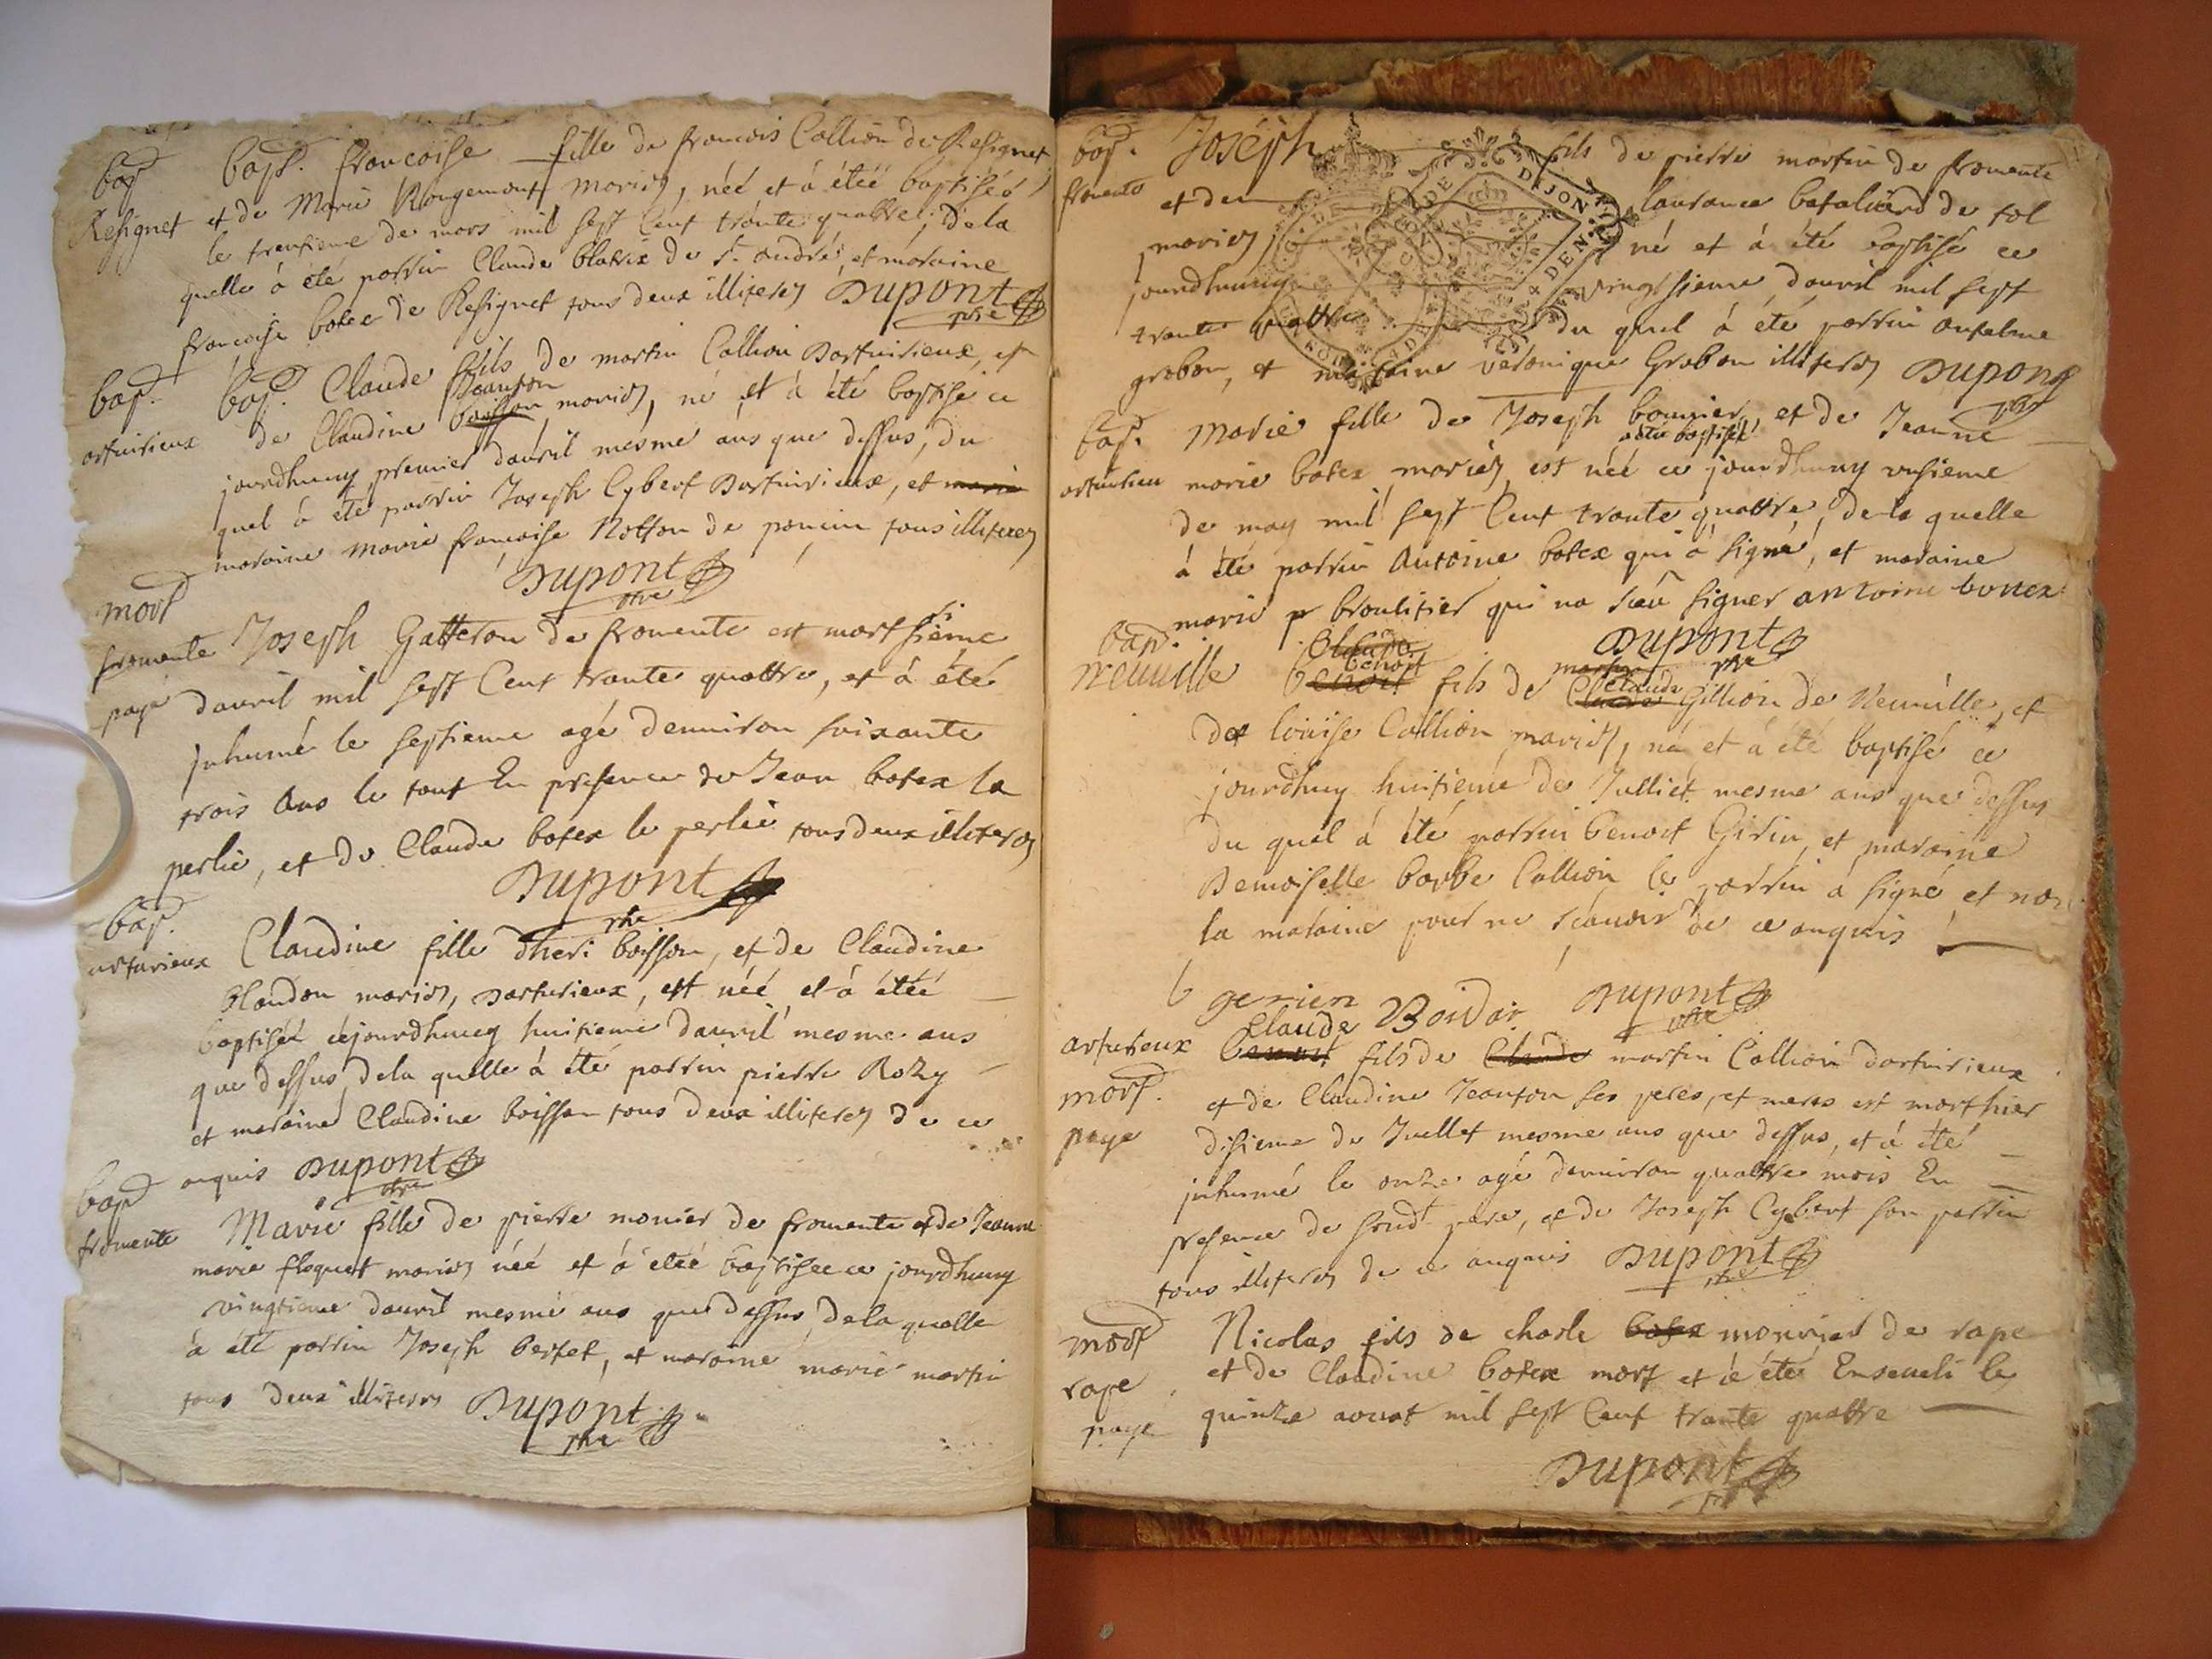 bap bapt. francoise fille de francois Collion de Resignet
Resignet et de Marie Rougemont mariés, néé et à étéé baptiséé
le trensieme de mars mil sept Cent trante quattre, de la
quelle à été parrin Claude blatrix de st. andré, et maraine
francoise botex de Resignet tous deux illiterés Dupont
ptre
bap. bap. Claude fils de martin Collion Dartuirieux, et
Jeanton
artuirieux de Claudine mariés, né et à été baptisé ce
jourdhuuy premier dauril mesme ans que dessus, du
quel à été parrin Joseph Cybert Dartuirieux, et marie
maraine marie francoise Notton de poncin tous illiterés
Dupont
ptre
mort
fromente Joseph Gatteron de fromente est mort sieme
paye dauril mil sept Cent trante quattre, et à été
Inhumé le septieme agé denuiron soixante
trois Ans le tout En presence de Jean botex la
perlie, et de Claude botex le perlie tous deux illiterés
Dupont
ptre
bap.
artuirieux Claudine fille dheri boisson, et de Claudine
blandon mariés, darturieux, est néé et à étéé
baptiséé cejourdhuuy huitieme dauril mesme ans
que dessus de la quelle à été parrin pierre Rozy
et maraine Claudine boisson tous deux illiterés de ce
anquis Dupont
ptre
bap
fromente Marie fille de pierre monier de fromente et de Jeanne
marie floquet mariés néé et à étéé baptisee ce jourdhuuy
vingtieme dauril mesme ans que dessus, de la quelle
à été parrin Joseph bertet, et maraine marie martin
tous deux illiterés Dupont
ptre
bap. Joseph fils de pierre martin de fromente
fromente et de laurance bataliard de tol
mariés né et à été baptisé ce
jourdhuuy vingtsieme dauril mil sept
trante quattre du quel à été parrin antelme
grobon, et maraine véronique Grobon illiterés Dupont
ptre
bap. Marie fille de Joseph bounier, et de Jeanne
a étéé baptiséé
artuirieu marie botex mariés, est néé ce jourdhuuy unsieme
de may mil sept Cent trante quattre, de la quelle
à été parrin Antoine botex qui à signé, et maraine
marie broulitier qui na sceu signer antoine bottex
bap. Claude Dupont
ptre
benoit martin Claude
neuuille benoit fils de Claude Gillion de Neuuille, et
de loüise Collion mariés, né et à été baptisé ce
jourdhuy huitieme de Julliet mesme ans que dessus
du quel à été parrin benoit Girin, et maraine
Demoiselle barbe Collion le parrin à signé, et non
la maraine pour ne scauoir de ce anquis
b gerien Dupont
ptre
Claude
artureux benoit fils de Claude martin Collion dartuirieux
mort. et de Claudine Jeanton ses peres, et meres est mort hier
paye disieme de Juellet mesme ans que dessus, et à été
inhumé le onze agé denuiron quattre mois En
presence de sondt pere, et de Joseph Cybert son parrin
tous illiterés de ce anquis Dupont
ptre
mort Nicolas fils de charle botex monnier de rape
rape et de Claudine botex mort et à été Enseueli le
paye quinze aoust mil sept Cent trante quattre
Dupont